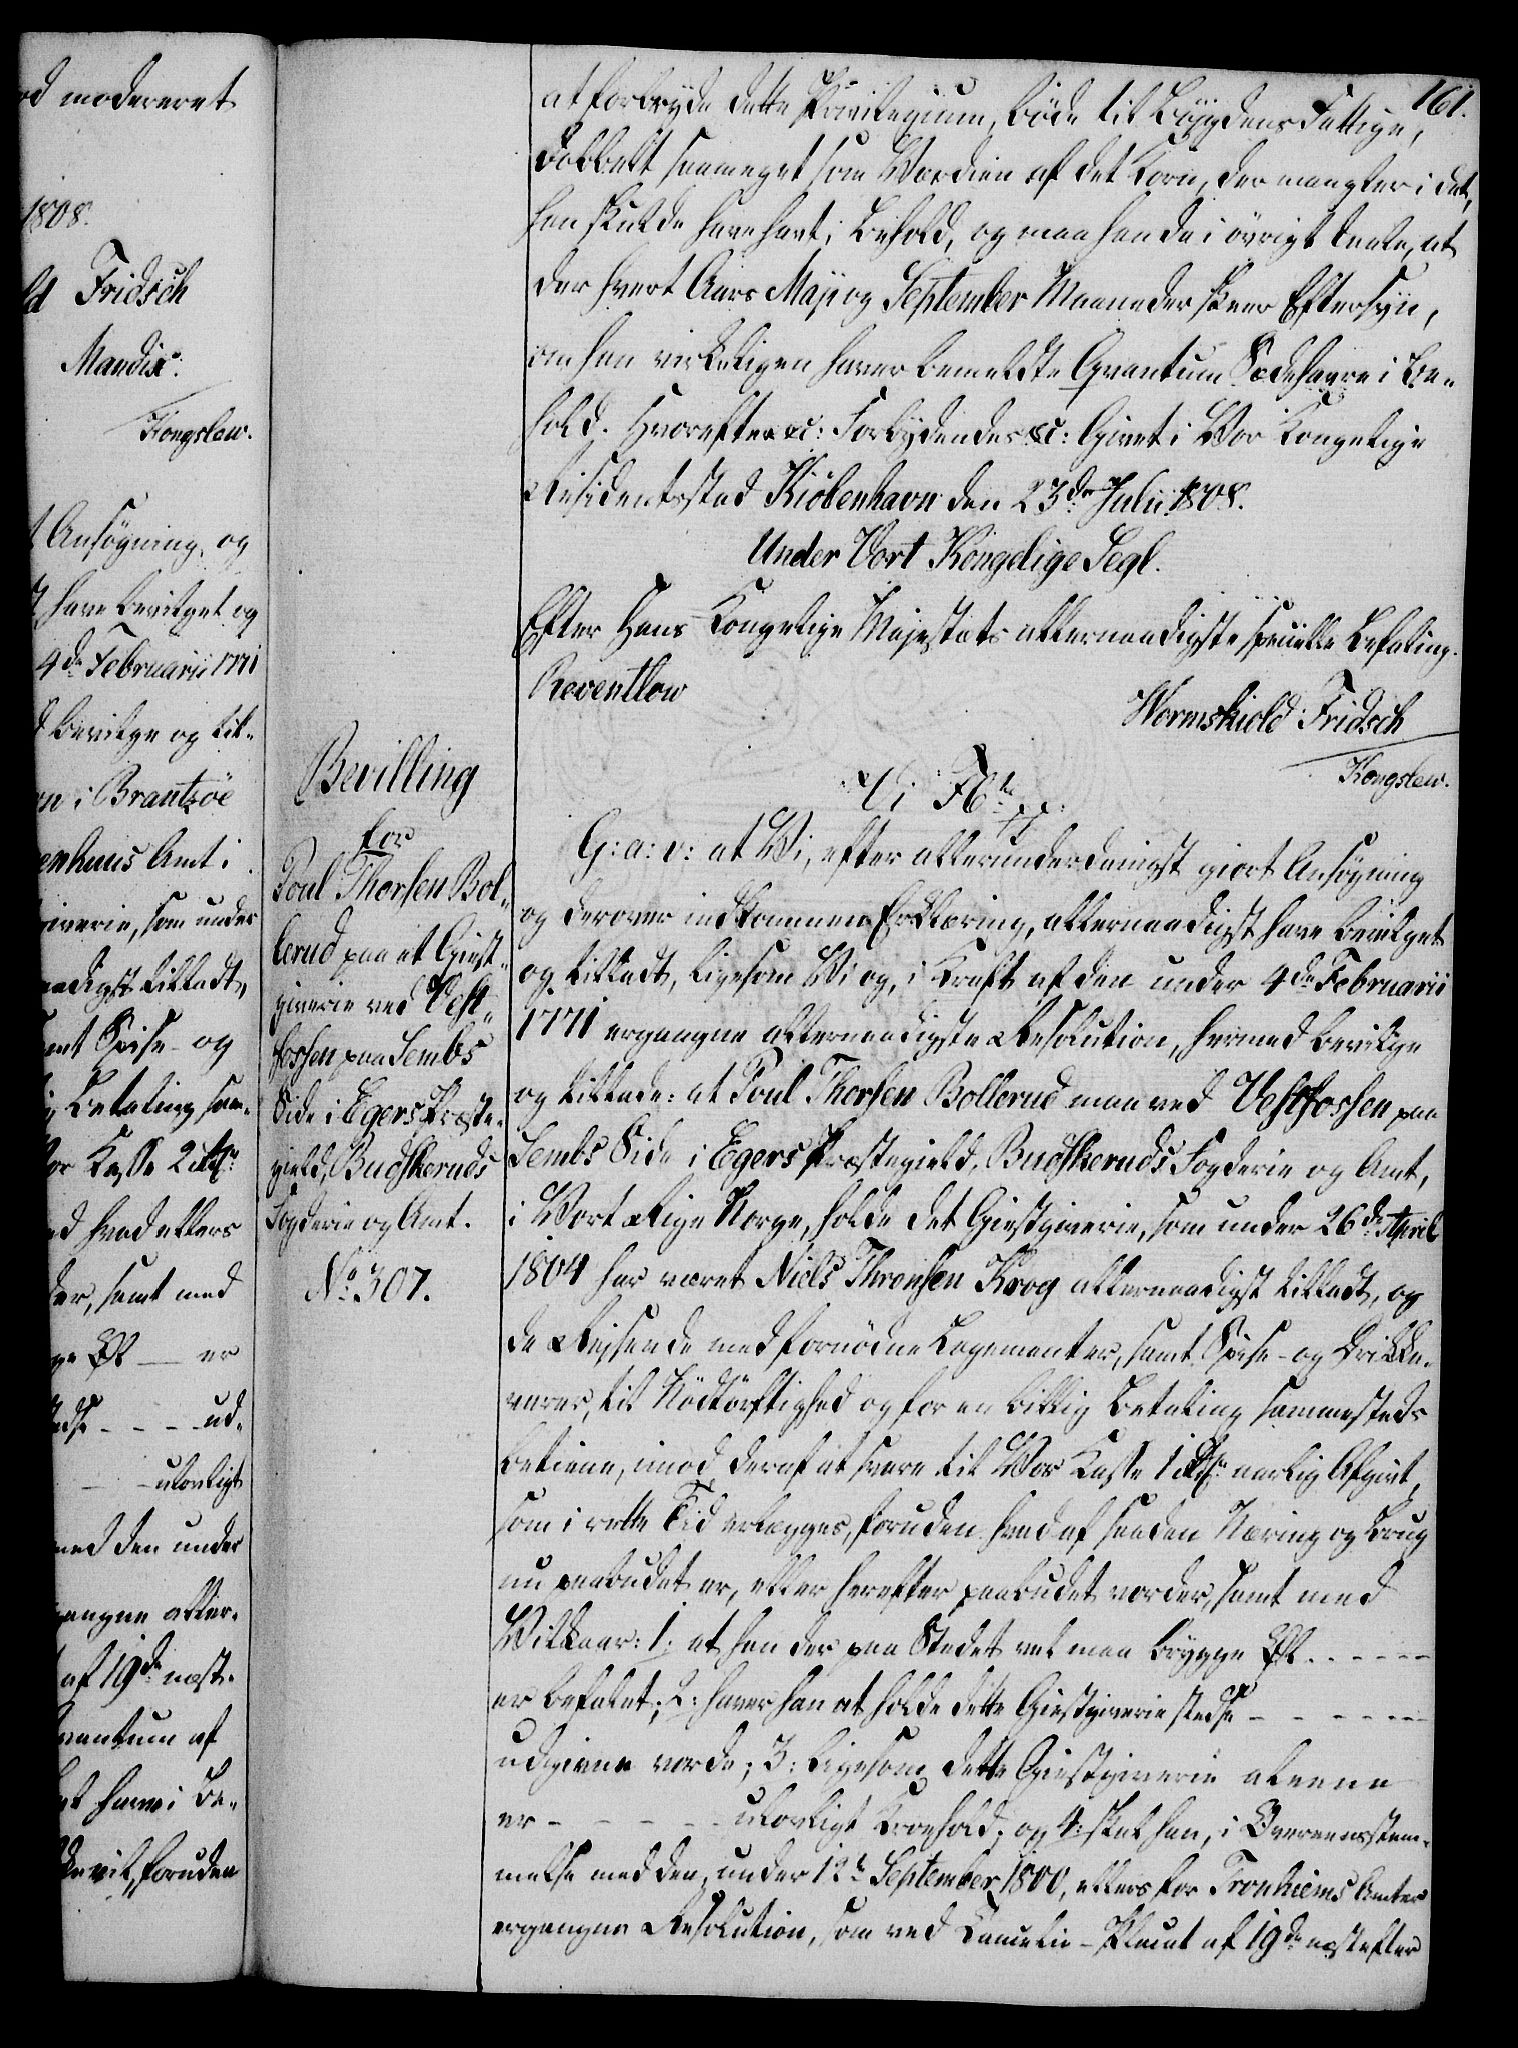 od modereret
1808.
ld Fridsch
Mandix.
Kongslew.
t Ansøgning, og
have bevilget og
4de Februarii 1771
bevilge og til-
en i Brantzöe
enhuus Amt i
iverie, som under
aadigst tilladt,
samt Spise- og
Betaling sam-
or Kasse 2 Rdlr
ed hvad ellers
der, samt med
ge Øl — er
stedse - - - ud-
- - ulovligt
med den under
gangne aller-
af 19de næst-
qvantum af
have i Be-
vil, foruden
Bevilling
for
Poul Thorsen Bol-
lerud paa et Giest-
giverie ved Vest-
fossen paa Sembs
Side i Egers Præste-
gield, Budskeruds
Fogderie og Amt.
No 307.
161.
at forbryde dette Privilegium, bøde til Bøygdens Fattige,
dobbelt saameget som Værdien af det Korn, der mangler i det,
han skulde have havt i Behold, og maa han da i øvrigt taale, at
der hvert Aars Maji og September Maaneder skeer Eftersyn,
om han virkeligen haver bemeldte Qvantum Sædehavre i Be-
hold. Hvorefter &c: Forbydendes &c: Givet i Vor Kongelige
Residentsstad Kiöbenhavn den 23de Julii 1808.
Under Vort Kongelige Segl.
Efter Hans Kongelige Majestæts allernaadigste specielle Befaling.
Reventlow
Wormskiold Fridsch
Kongslew.
Vi Fr. 6te
G: a: v: at Vi, efter allerunderdanigst giort Ansøgning
og derover indkommen Erklæring, allernaadigst have bevilget
og tilladt, ligesom Vi og, i Kraft af den under 4de Februarii
1771 ergangne allernaadigste Resolution, hermed bevilge
og tillade: at Poul Thorsen Bollerud maa ved Vestfossen paa
Sembs Side i Egers Præstegield, Budskeruds Fogderie og Amt,
i Vort Rige Norge, holde det Giestgiverie, som under 26de April
1804 har været Niels Thronsen Krog allernaadigst tilladt, og
de Reisende med fornødne Logementer, samt Spise- og Drikke-
varer, til Nødtørftighed og for en billig Betaling sammesteds
betiene, imod deraf at svare til Vor Kasse 1 Rdlr aarlig Afgivt,
som i rette Tid erlægges, foruden hvad af saadan Næring og Brug
nu paabudet er, eller herefter paabudet vorder, samt med
Vilkaar: 1: at han der paa Stedet vel maa brygge Øl - - - - - -
er befalet; 2: haver han at holde dette Giestgiverie stedse - - - - - -
udgivne vorde; 3: ligesom dette Giestgiverie aleene
er - - - - - ulovligt Kroehold; og 4: skal han, i Overeensstem-
melse med den, under 12te September 1800, ellers for Tronhiems Amter
ergangne Resolution, som ved Cancelie-Placat af 19de næstefter